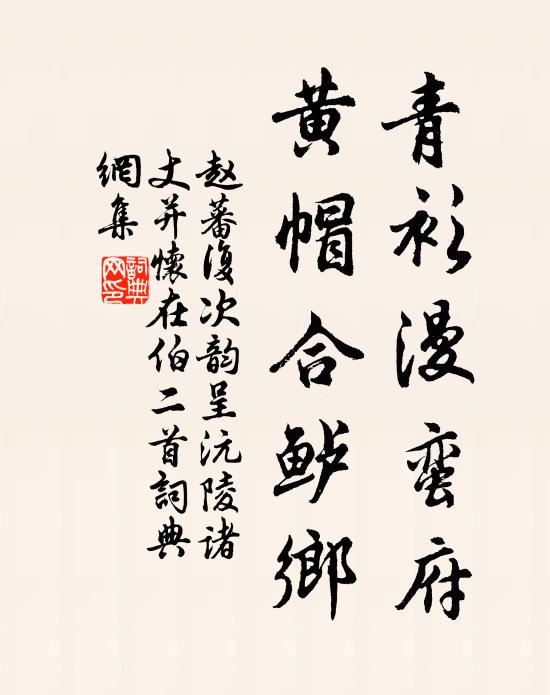 青衫漫蛮府
黄帽合鲈鄉
赵蕃復次韵呈沅陵诸
丈并懷在伯二首詞典
網集
詞典網印